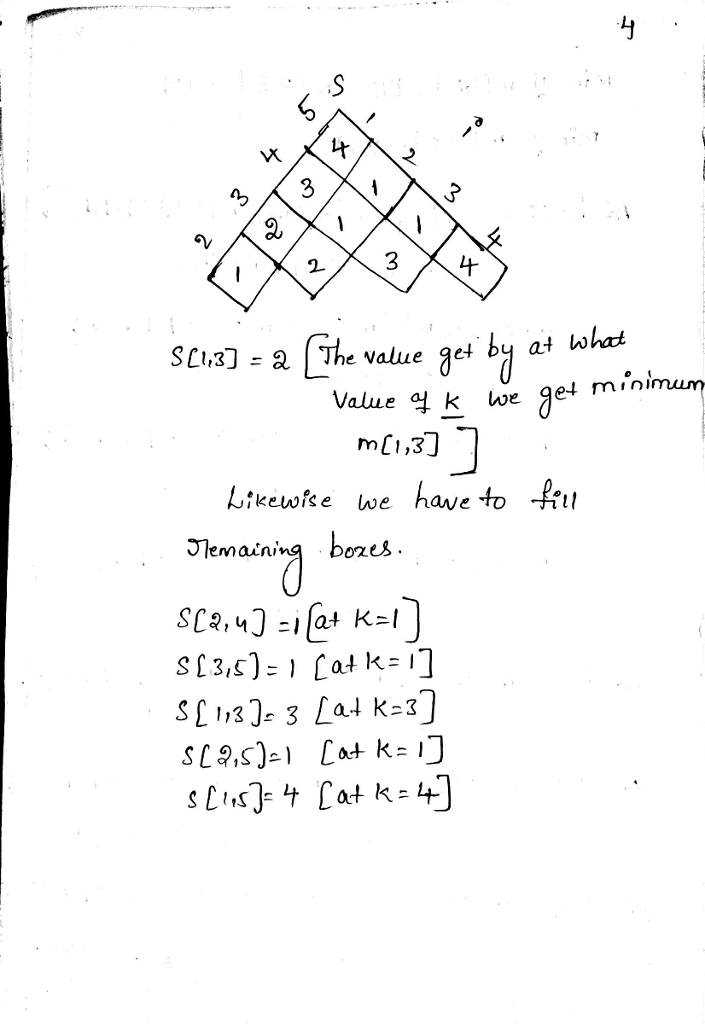 4
S
5 1
4 4 2
3 3 1 3
2 2 1 1 4
1 2 3 4
S[1,3] = 2 [The value get by at what
Value of k we get minimum
m[1,3] ]
Likewise we have to fill
remaining boxes.
S[2,4] = 1 [at K=1]
S[3,5] = 1 [at K=1]
S[1,3] = 3 [at K=3]
S[2,5] = 1 [at K=1]
S[1,5] = 4 [at K=4]